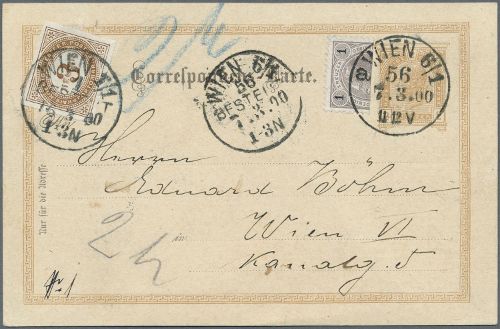 Correspondenz-Karte.
3
1
1
WIEN 6/1
56
7.3.00
1-3N
WIEN 6/1
56
BESTELLT
7.3.00
1-3N
WIEN 6/1
56
7.3.00
11-12V
Nur für die Adresse
Herrn
Eduard Böhm
in
Wien VI
Kanalg. 5
2 h